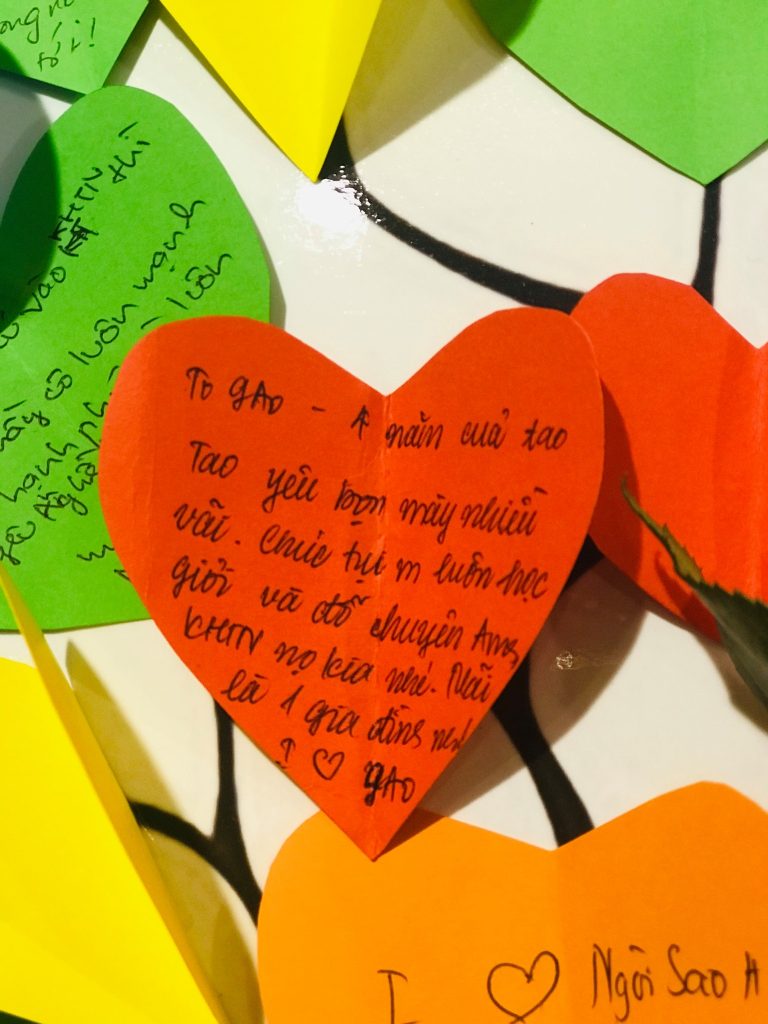 tới!
KHTN thì
vào
cô luôn mạnh
luôn
hạnh
To gAo - 1 năm của tao
Tao yêu bọn mày nhiều
vãi. Chúc tụi m luôn học
giỏi và đỗ chuyên Ams,
KHTN nọ kia nhé. Mãi
là 1 gia đình nhé!
I ♡ gAo
I ♡ Ngôi Sao H